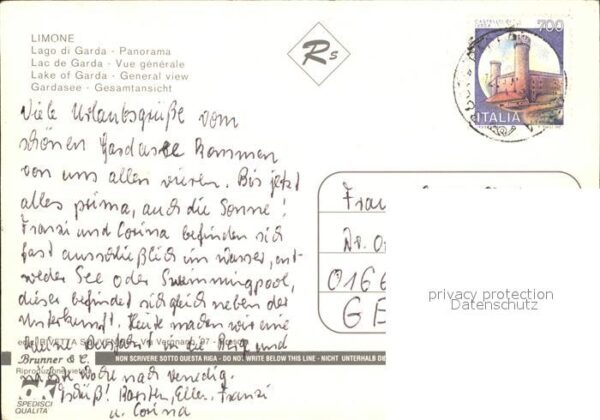 LIMONE
Lago di Garda - Panorama
Lac de Garda - Vue générale
Lake of Garda - General view
Gardasee - Gesamtansicht
Rs
700
ITALIA
Viele Urlaubsgrüße vom
schönen Gardasee kommen
von uns allen vieren. Bis jetzt
alles prima, auch die Sonne!
Franzi und Corina befinden sich
fast ausschließlich im Wasser, ent-
weder See oder Swimmingpool,
dieser befindet sich gleich neben der
Unterkunft. Heute machen wir eine
kleine in die Berge und
nächste Woche nach Venedig.
Tschüß! Karsten, Ellen, Franzi
u. Corina
Dr.
0166
GE
privacy protection
Datenschutz
RIVETTA Via Verona, 97
Brunner & C.
NON SCRIVERE SOTTO QUESTA RIGA - DO NOT WRITE BELOW THIS LINE - NICHT UNTERHALB DIE
Riproduzione vietata
SPEDISCI
QUALITÀ